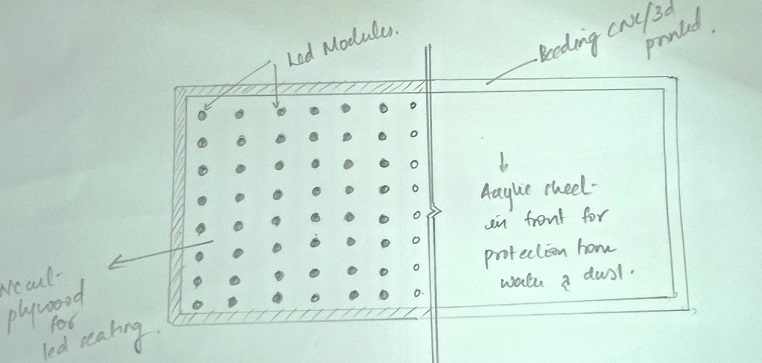 Led Modules.
Beeding CNC/3d
printed.
Acrylic sheet
in front for
protection from
water & dust.
plywood
for
led seating.